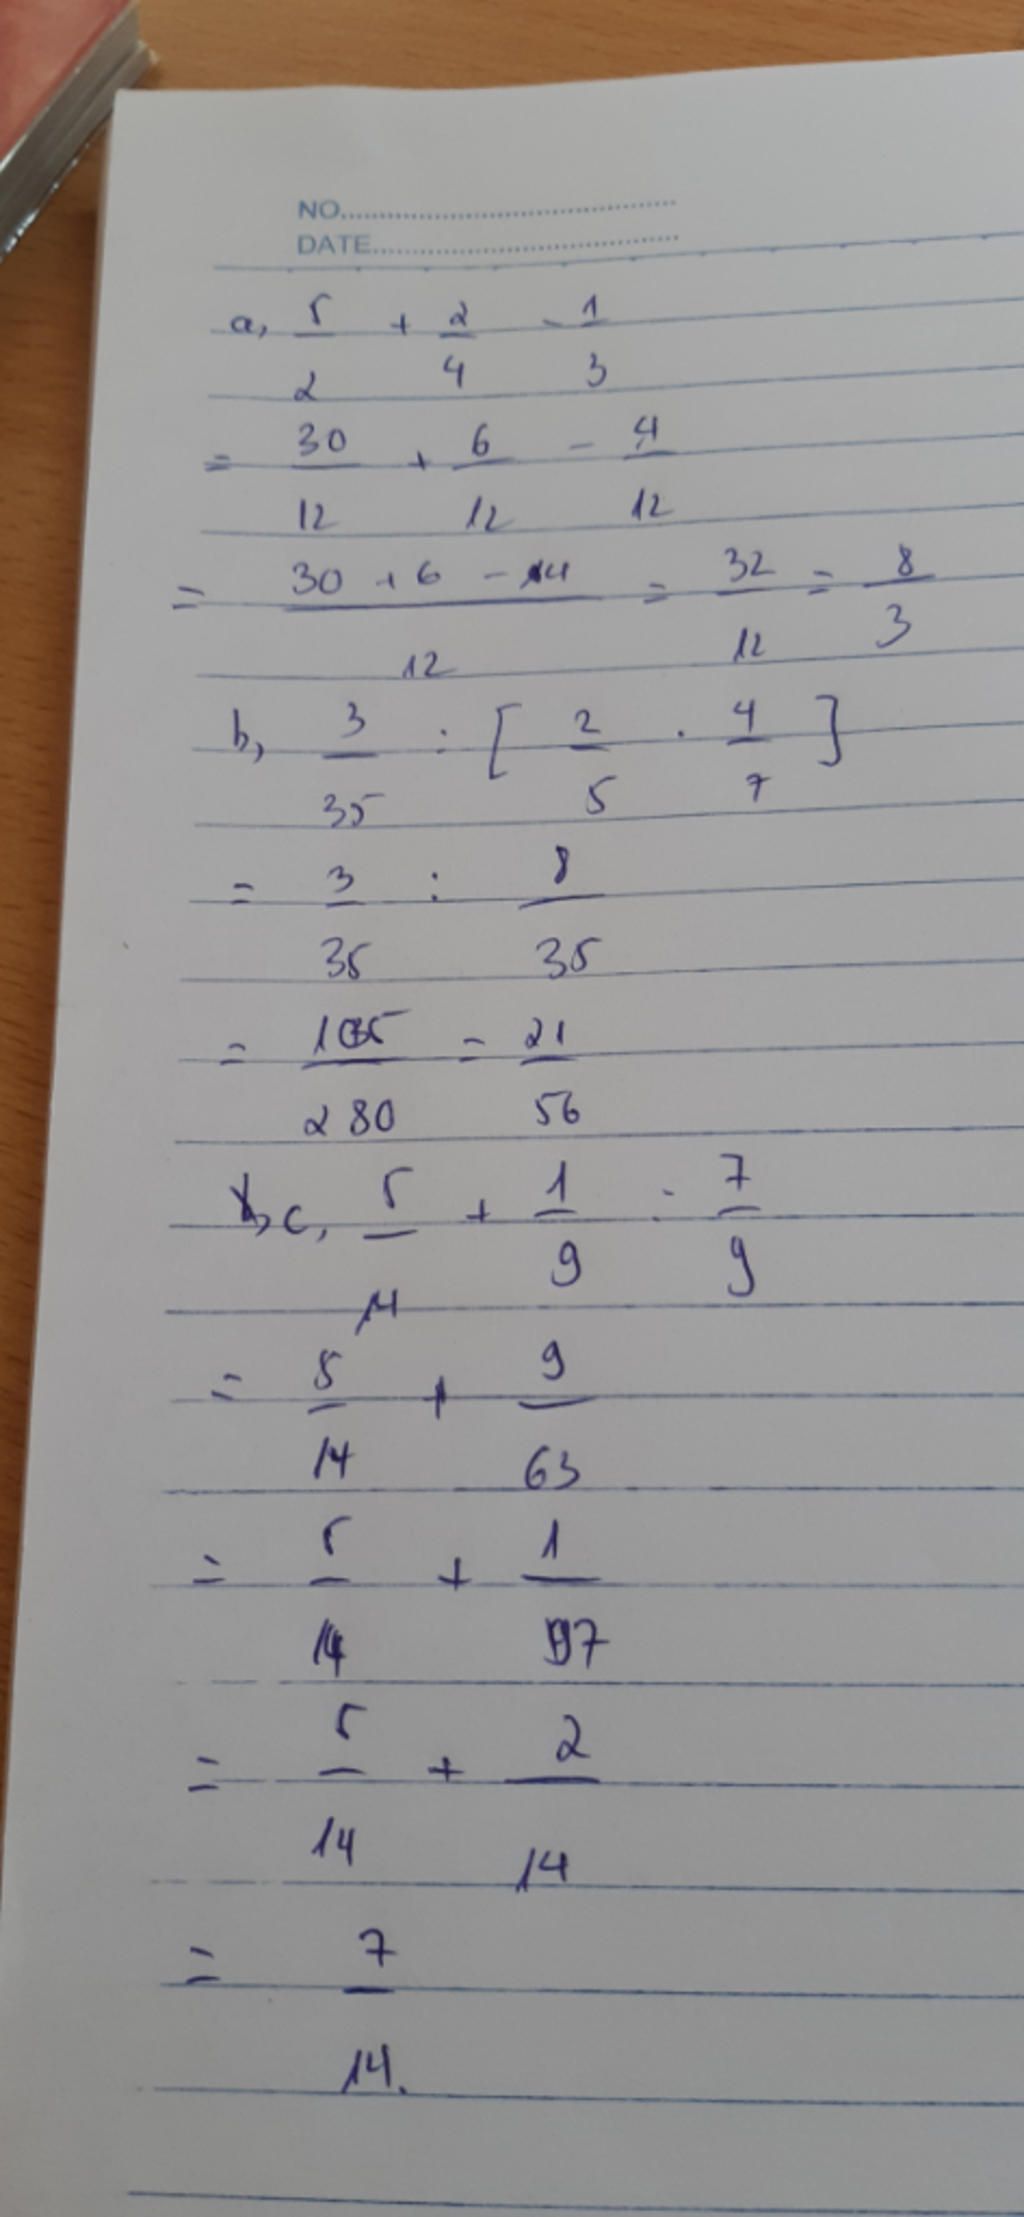 NO.
DATE.
a, 5/2 + 2/4 - 1/3
= 30/12 + 6/12 - 4/12
= (30 + 6 - 4)/12 = 32/12 = 8/3
b, 3/35 : [ 2/5 . 4/7 ]
= 3/35 : 8/35
= 105/280 = 21/56
c, 5/14 + 1/9 : 7/9
= 5/14 + 9/63
= 5/14 + 1/7
= 5/14 + 2/14
= 7/14.